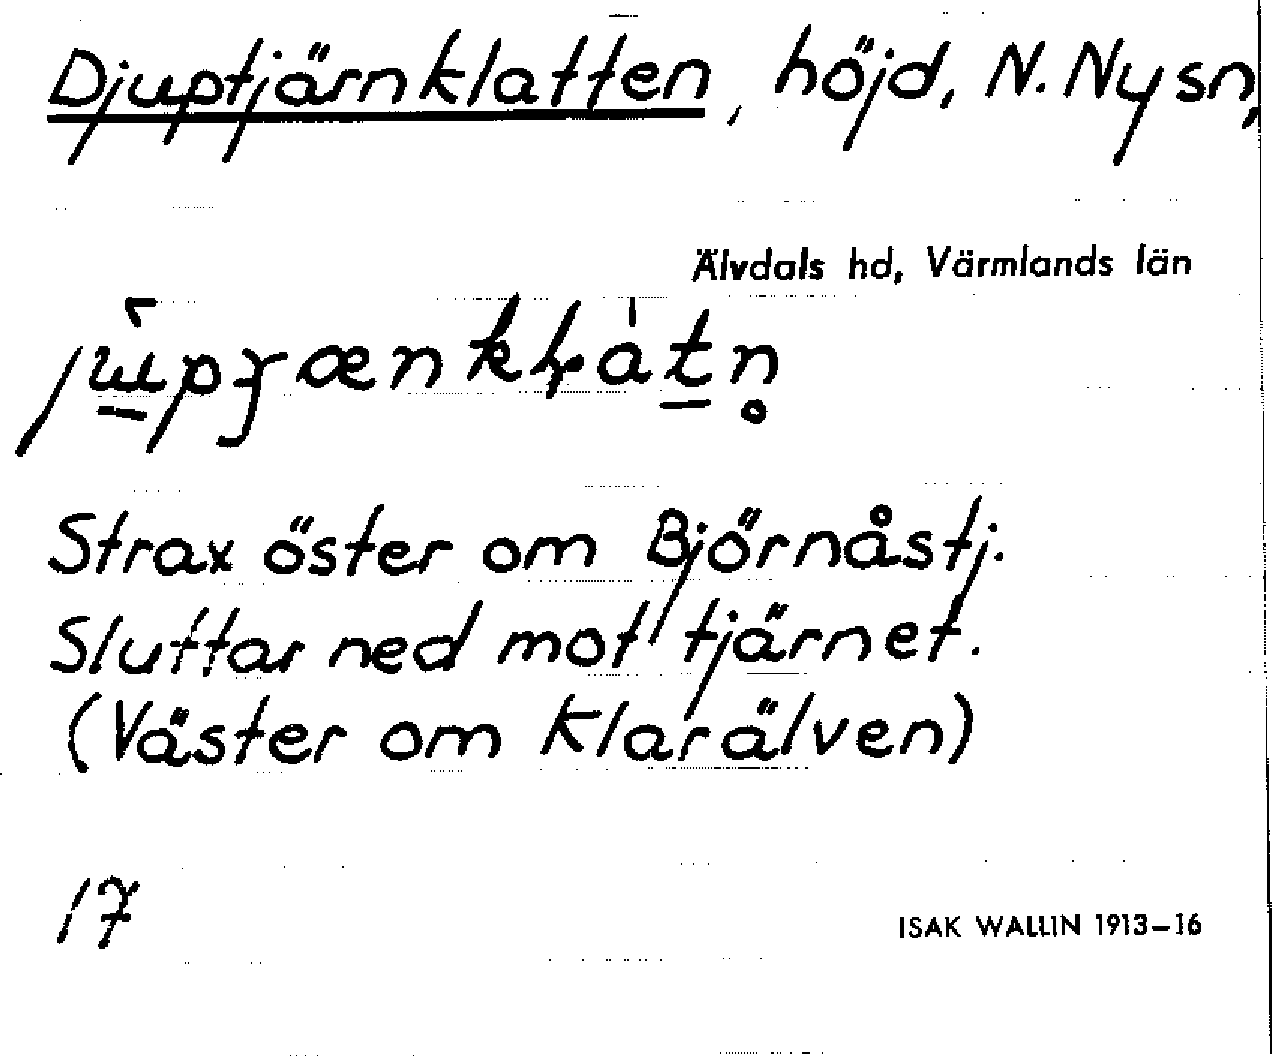 Djuptjärnklatten, höjd, N. Nysn,
Älvdals hd, Värmlands län
Strax öster om Björnåstj.
Sluttar ned mot tjärnet.
(Väster om Klarälven)
17
ISAK WALLIN 1913–16